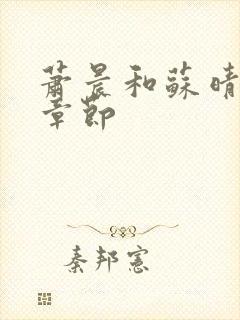 蕭晨和蘇晴
章節
秦邦憲